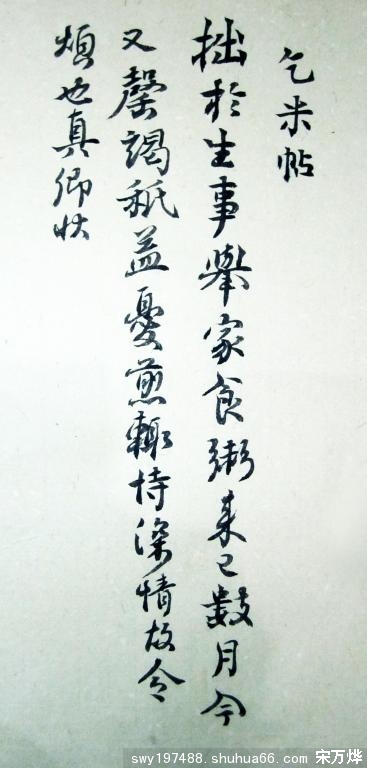 乞米帖
拙於生事舉家食粥来已數月今
又罄竭秖益憂煎輒恃深情故令
煩也真卿状
swy197488.shuhua66.com 宋万烨